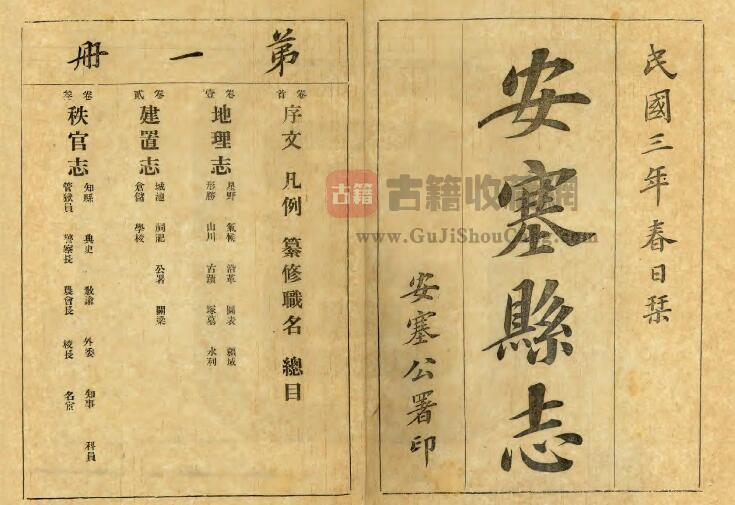 民國三年春日栞
安塞縣志
安塞公署印
第一册
卷首
序文 凡例 纂修職名 總目
卷壹
地理志
星野 氣候 沿革 圖表 疆域
形勝 山川 古蹟 塚墓 水利
卷貳
建置志
城池 祠祀 公署 關梁
倉儲 學校
卷叁
秩官志
知縣 典史 教諭 外委 知事 科員
管獄員 警察長 農會長 校長 名宦
古籍 古籍收藏網
www.GuJiShouCang.com